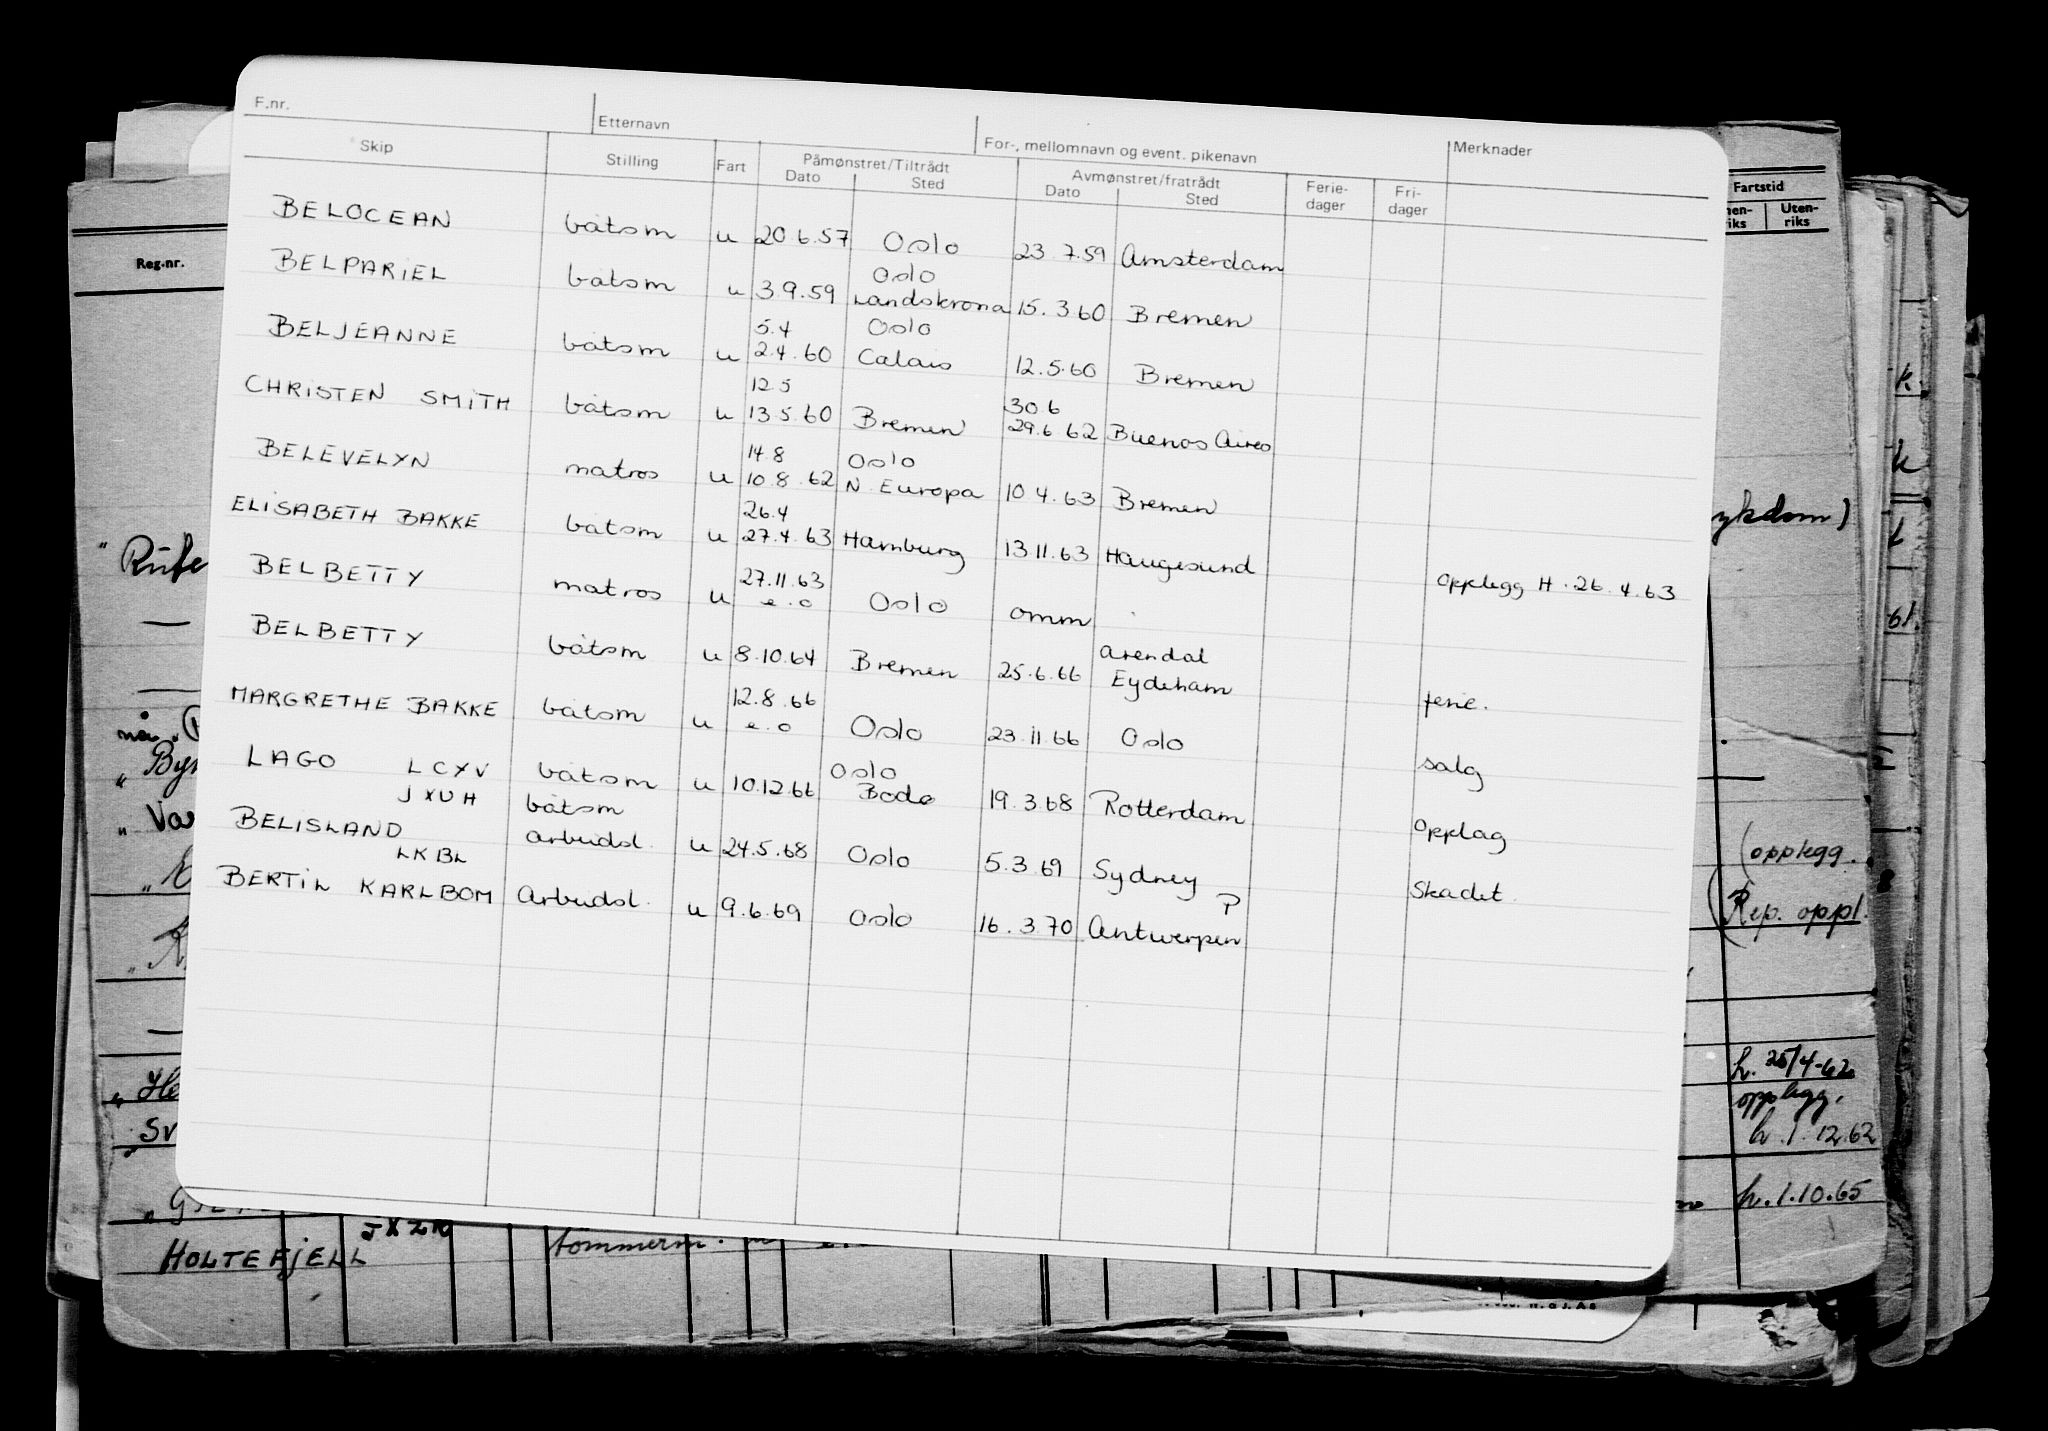 F.nr. Etternavn For-, mellomnavn og event. pikenavn Merknader
Skip Stilling Fart Påmønstret/Tiltrådt Avmønstret/fratrådt Ferie- Fri-
Dato Sted Dato Sted dager dager
BELOCEAN båtsm u 20 6.57 Oslo 23 7.59 Amsterdam
Oslo
BELPARIEL båtsm u 3.9.59 Landskrona 15.3 60 Bremen
5.4 Oslo
BELJEANNE båtsm u 2.4.60 Calais 12.5.60 Bremen
12 5 30 6
CHRISTEN SMITH båtsm u 13 5.60 Bremen 29.6 62 Buenos Aires
14.8 Oslo
BELEVELYN matros u 10.8.62 N. Europa 10 4.63 Bremen
26.4
ELISABETH BAKKE båtsm u 27.4.63 Hamburg 13 11.63 Haugesund opplegg H. 26.4.63
27.11.63
BELBETTY matros u e.o Oslo omm
Arendal
BELBETTY båtsm u 8.10.64 Bremen 25.6.66 Eydehavn ferie.
12.8.66
MARGRETHE BAKKE båtsm u e.o Oslo 23.11.66 Oslo salg
Oslo
LAGO LCXV båtsm u 10.12.66 Bodø 19.3.68 Rotterdam opplag
JXUH båtsm
BELISLAND arbeidsl. u 24.5.68 Oslo 5.3.69 Sydney Skadet.
LKBL P
BERTIL KARLBOM Arbeidsl. u 9.6.69 Oslo 16.3.70 Antwerpen
Fartstid
Uten-
riks
Reg.nr.
(opplegg.
(Rep. oppl.
h. 25/4-62
opplegg.
h. 1.12.62
h. 1.10.65
HOLTEFJELL tømmerm.